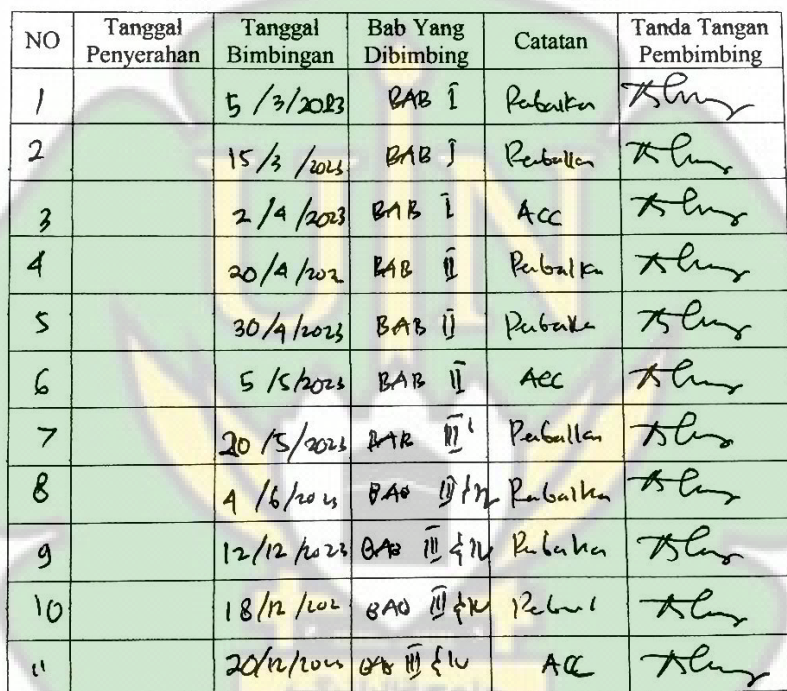 NO Tanggal Penyerahan Tanggal Bimbingan Bab Yang Dibimbing Catatan Tanda Tangan Pembimbing
1 5/3/2023 BAB I Perbaikan
2 15/3/2023 BAB I Perbaikan
3 2/4/2023 BAB I ACC
4 20/4/202 BAB II Perbaikan
5 30/4/2023 BAB II Perbaikan
6 5/5/2023 BAB II ACC
7 20/5/2023 BAB III Perbaikan
8 4/6/2023 BAB III & IV Perbaikan
9 12/12/2023 BAB III & IV Perbaikan
10 18/12/202 BAB III & IV
11 20/12/2023 BAB III & IV ACC
UIN